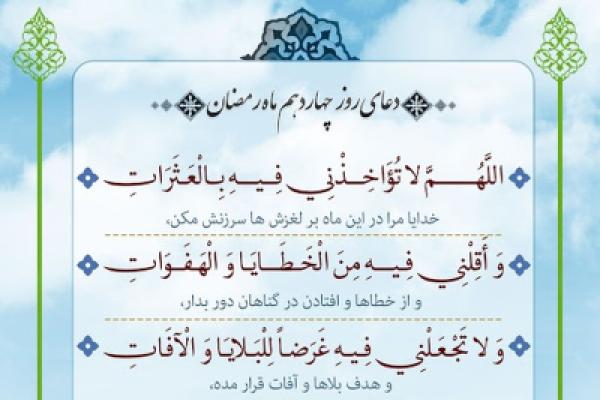 دعای روز چهاردهم ماه رمضان
اللَّهُمَّ لا تُؤَاخِذْنِي فِيهِ بِالْعَثَرَاتِ
خدایا مرا در این ماه بر لغزش ها سرزنش مکن،
وَ أَقِلْنِي فِيهِ مِنَ الْخَطَايَا وَ الْهَفَوَاتِ
و از خطاها و افتادن در گناهان دور بدار،
وَ لا تَجْعَلْنِي فِيهِ غَرَضاً لِلْبَلايَا وَ الْآفَاتِ
و هدف بلاها و آفات قرار مده،